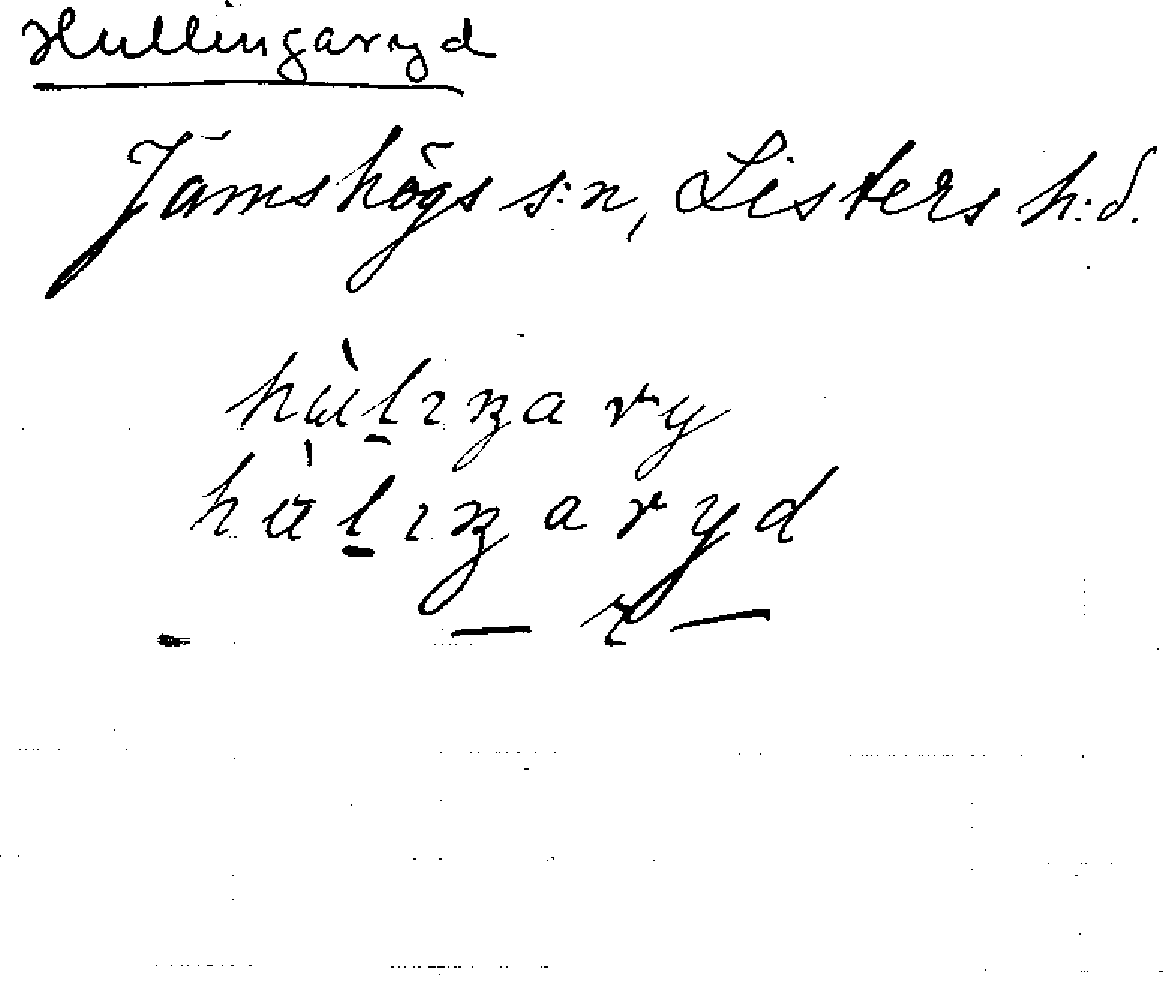 Hullingaryd
Jämshögs s:n, Listers h:d.
hùlıŋa ry
hùlıŋaryd
— r —